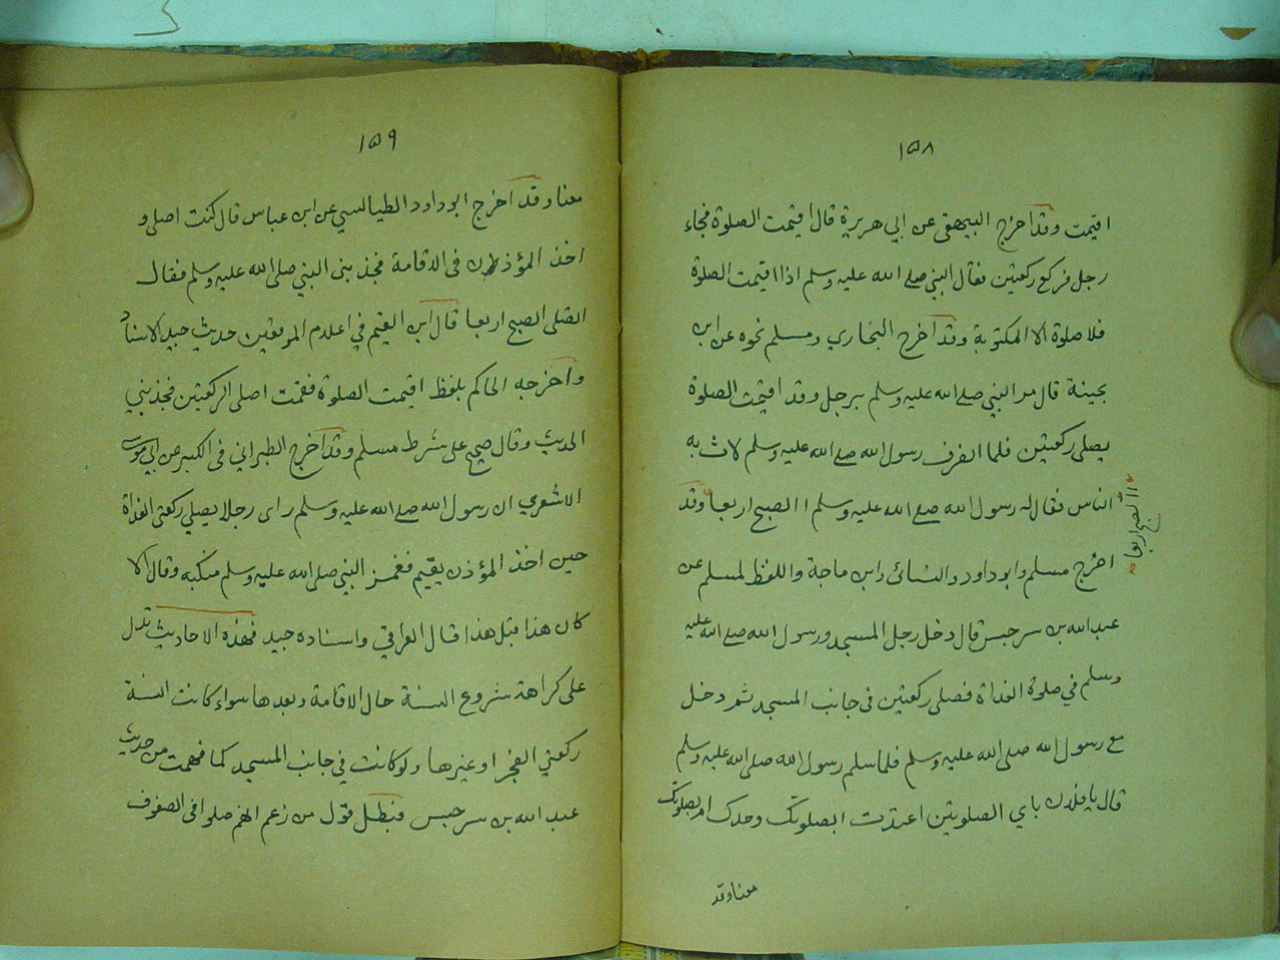 ١٥٨
اقيمت وقد اخرج البيهقي عن ابي هريرة قال اقيمت الصلوة فجاء
رجل فركع ركعتين فقال النبي صلے الله عليه وسلم اذا اقيمت الصلوة
فلا صلوة الا المكتوبة وقد اخرج البخاري ومسلم نحوه عن ابن
بحينة قال مر النبي صلے الله عليه وسلم برجل وقد اقيمت الصلوة
يصلي ركعتين فلما انصرف رسول الله صلے الله عليه وسلم لاث به
الناس فقال له رسول الله صلے الله عليه وسلم االصبح اربعا وقد
االصبح اربعا
اخرج مسلم وابو داود والنسائي وابن ماجة واللفظ لمسلم عن
عبد الله بن سرجس قال دخل رجل المسجد ورسول الله صلے الله عليه
وسلم في صلوة الغداة فصلى ركعتين في جانب المسجد ثم دخل
مع رسول الله صلى الله عليه وسلم فلما سلم رسول الله صلى الله عليه وسلم
قال يا فلان باي الصلوتين اعتددت ابصلوتك وحدك ام بصلوتك
معنا وقد
١٥٩
معنا وقد اخرج ابو داود الطيالسي عن ابن عباس قال كنت اصلي و
اخذ المؤذن في الاقامة فجذبني النبي صلى الله عليه وسلم فقال
اتصلي الصبح اربعا قال ابن القيم في اعلام الموقعين حديث جيد الاسناد
واخرجه الحاكم بلفظ اقيمت الصلوة فقمت اصلي الركعتين فجذبني
الحديث وقال صحيح على شرط مسلم وقد اخرج الطبراني في الكبير عن ابي موسى
الاشعري ان رسول الله صلے الله عليه وسلم راى رجلا يصلي ركعتي الغداة
حين اخذ المؤذن يقيم فغمز النبي صلى الله عليه وسلم منكبه وقال الا
كان هذا قبل هذا قال العراقي واسناده جيد فهذه الاحاديث تدل
على كراهة شروع السنة حال الاقامة وبعدها سواء كانت السنة
ركعتي الفجر او غيرها ولو كانت في جانب المسجد كما فهمت من حديث
عبد الله بن سرجس فبطل قول من زعم انهم صلوا في الصفوف